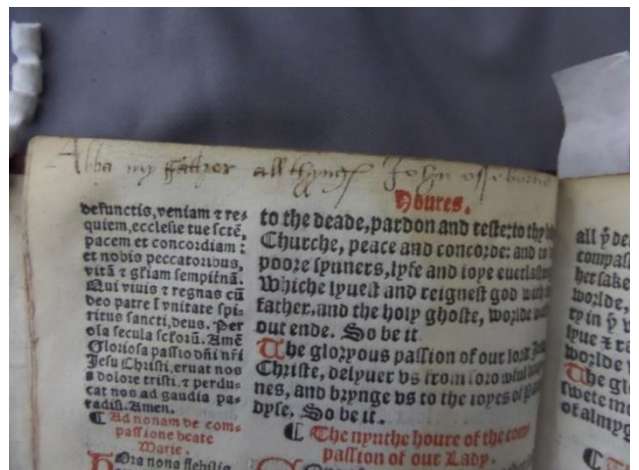 Abba my ffather all thyngs John osseborne
Houres.
defunctis, veniam ⁊ re⸗
quiem, ecclesie tue sctē,
pacem et concordiam:
et nobis peccatoribus,
vitā ⁊ gľiam sempitnā.
Qui viuis ⁊ regnas cū
deo patre ī vnitate spi⸗
ritus sancti, deus. Per
oīa secula seƈorū. Amē
Gloriosa passio dñi nři
Jesu Christi, eruat nos
a dolore tristi, ⁊ perdu⸗
cat nos ad gaudia pa⸗
radisi. Amen.
¶ Ad nonam de com⸗
passione beate
Marie.
Hora nona flebilis
to the deade, pardon and reste: to thy
Churche, peace and concorde: and to
poore synners, lyfe and ioye euerlast
Whiche lyuest and reignest god with
father, and the holy ghoste, worlde
out ende. So be it.
The gloryous passion of our lord
Christe, delyuer vs from soro
nes, and brynge vs to the ioyes of
dyse. So be it.
¶ The nynthe houre of the com
passion of our Lady.
all ẏ de
compass
her sake
worlde,
ry in ẏ
lyue ⁊ re
worlde
The glo
swete m
of almyg